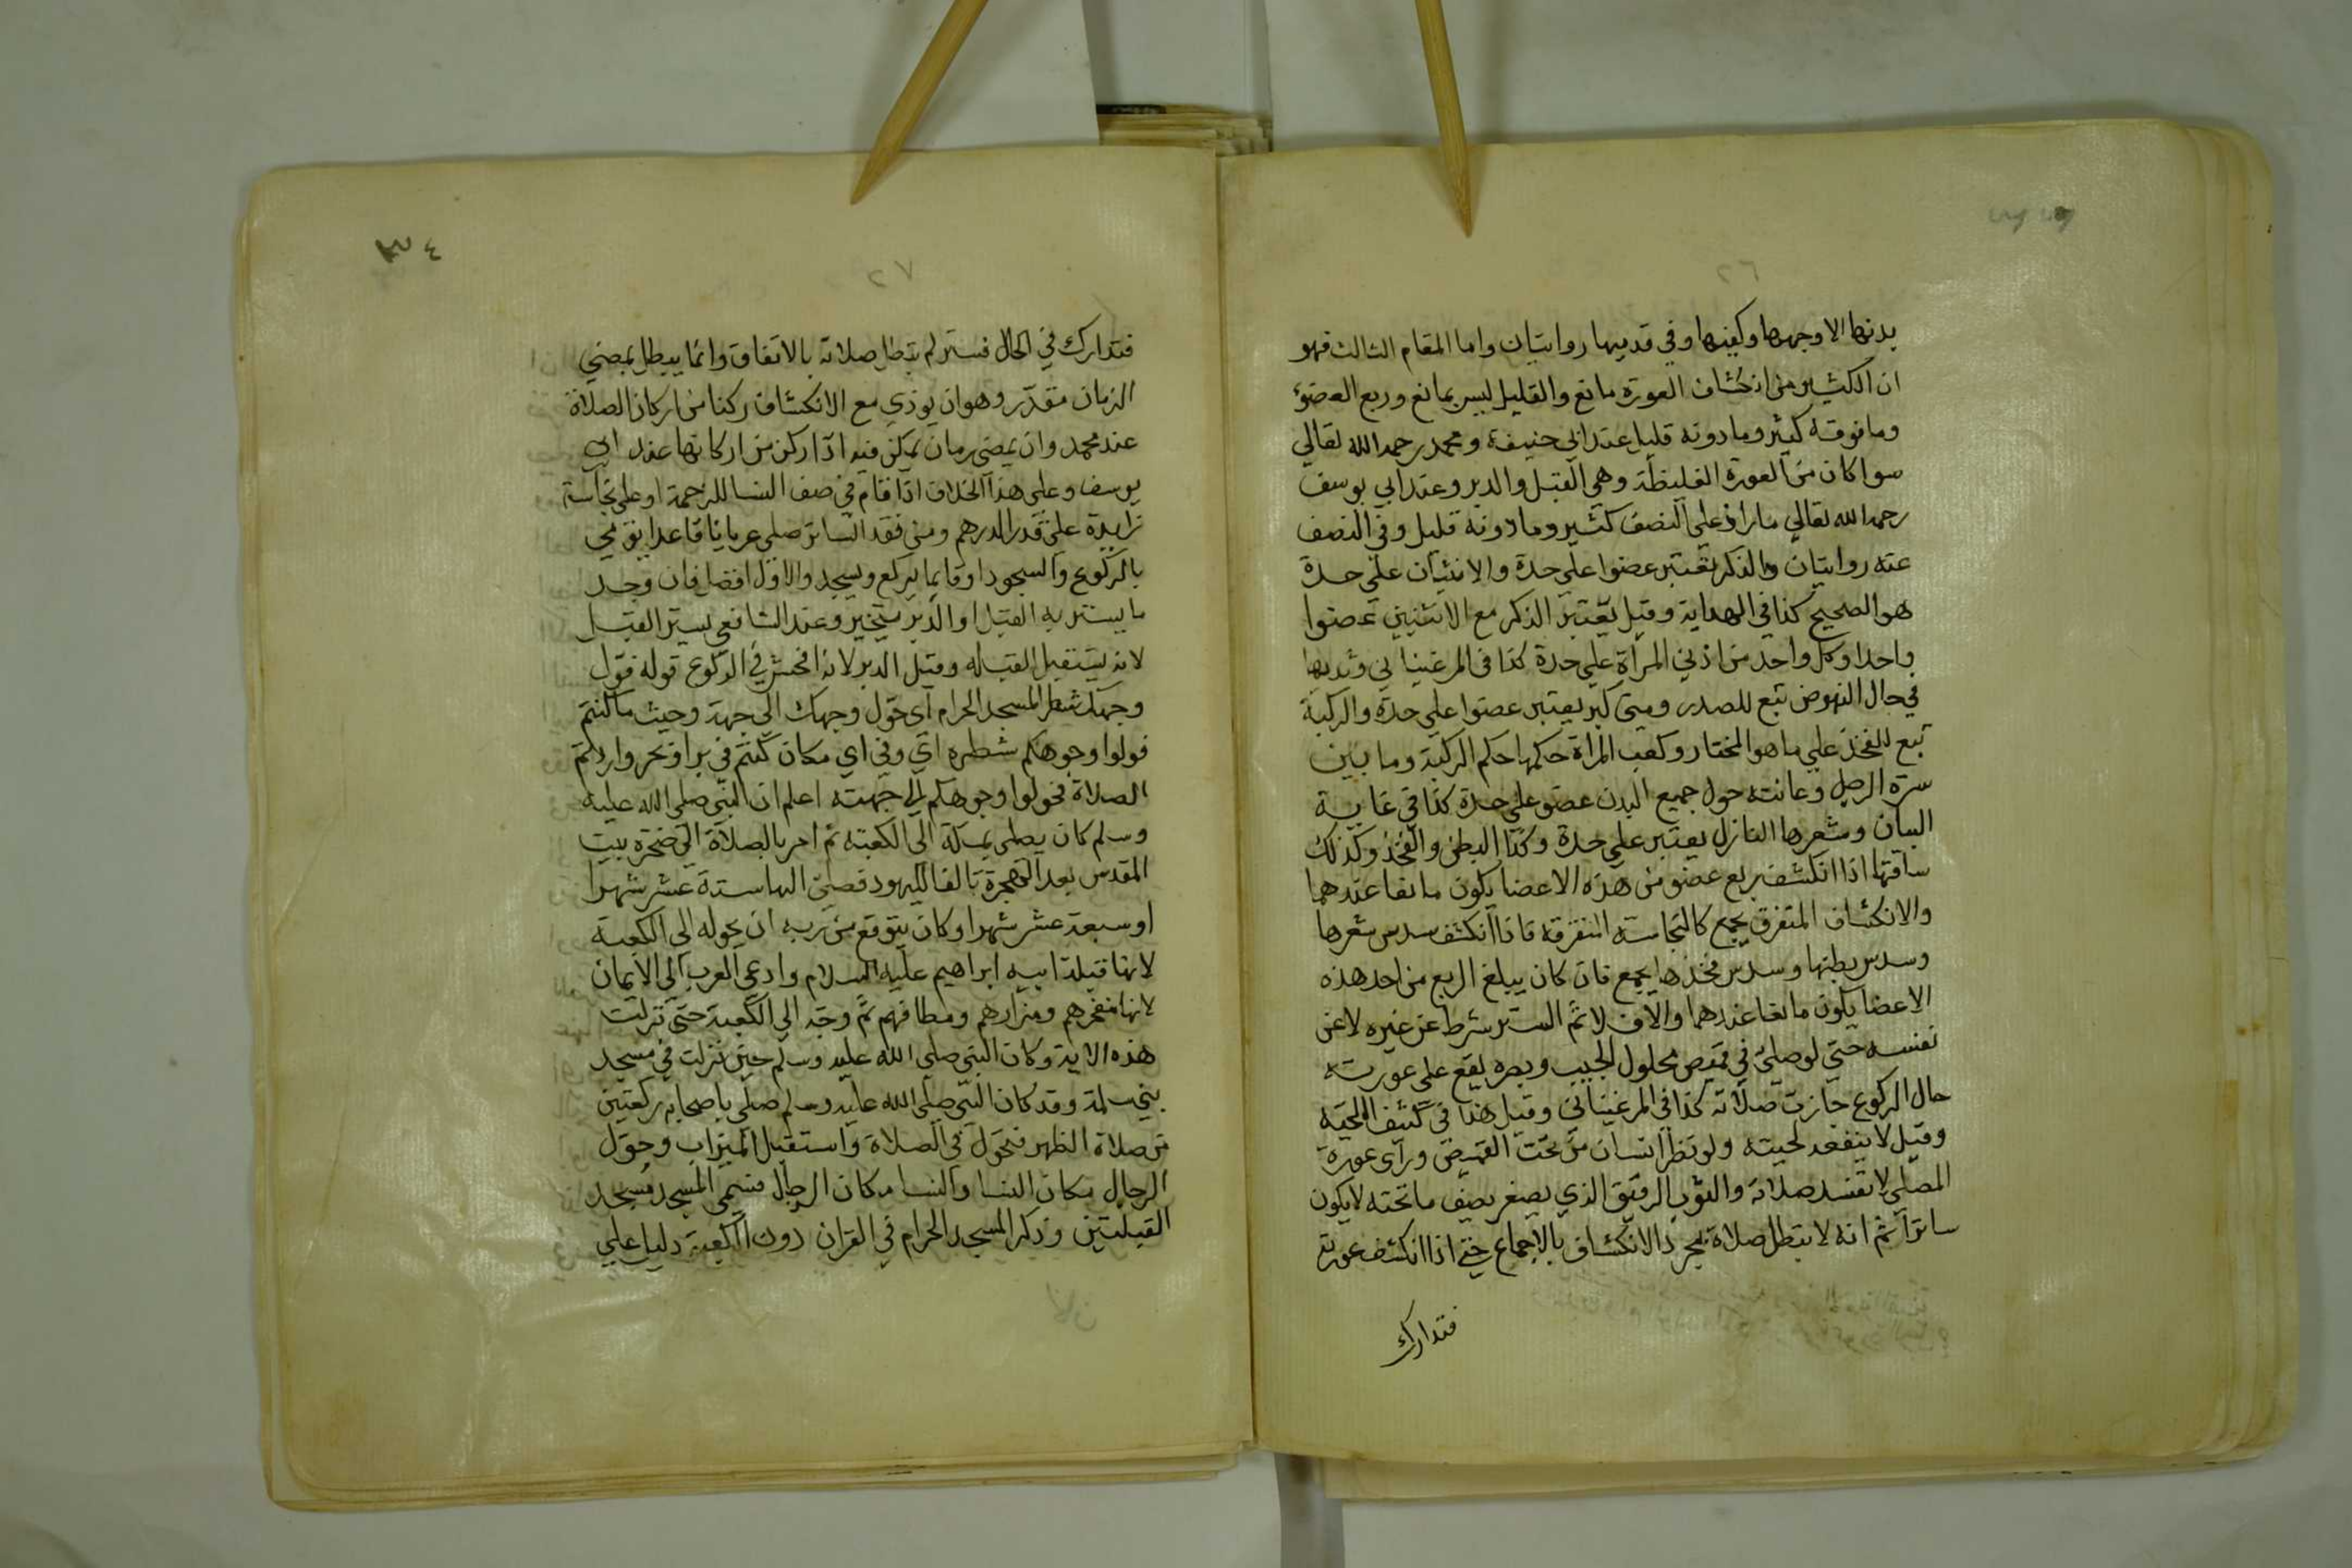 ٢٦
بدنها الا وجهها وكفيها وفي قدميها روايتان واما المقام الثالث فهو
ان الكثير من انكشاف العورة مانع والقليل ليس بمانع وربع العضو
وما فوقه كثير وما دونه قليل عند ابي حنيفة ومحمد رحمه الله تعالي
سوا كان من العورة الغليظة وهي القبل والدبر وعند ابي يوسف
رحمه الله تعالي ما زاد علي النصف كثير وما دونه قليل وفي النصف
عنه روايتان والذكر يعتبر عضوا علي حدة والانثيان علي حدة
هو الصحيح كذا في الهداية وقيل يعتبر الذكر مع الانثيين عضوا
واحدا وكل واحد من اذني المرأة علي حدة كذا في المرغيناني وثديها
في حال النهوض تبع للصدر ومتي كبر يعتبر عضوا علي حدة والركبة
تبع للفخذ علي ما هو المختار وكعب المراة حكمها حكم الركبة وما بين
سرة الرجل وعانته حول جميع البدن عضو علي حدة كذا في غاية
البيان وشعرها النازل يعتبر علي حدة وكذا البطن والفخذ وكذلك
ساقها اذا انكشف ربع عضو من هذه الاعضا يكون مانعا عندهما
والانكشاف المتفرق يجمع كالنجاسة المتفرقة فاذا انكشف سدس شعرها
وسدس بطنها وسدس فخذها يجمع فان كان يبلغ الربع من احد هذه
الاعضا يكون مانعا عندهما والا فلا ثم الستر شرط عن غيره لا عن
نفسه حتي لو صلي في قميص محلول الجيب وبصره يقع علي عورته
حال الركوع جازت صلاته كذا في المرغيناني وقيل هذا في كثيف اللحية
وقيل لا ينفعه لحيته ولو نظر انسان من تحت القميص وراي عورة
المصلي لا تفسد صلاته والثوب الرقيق الذي يصغر يصف ما تحته لا يكون
ساترا ثم انه لا تبطل صلاة بمجرد الانكشاف بالاجماع حتي اذا انكشف عورته
فتدارك
٢٧
٣٤
فتدارك في الحال فستر لم تبطل صلاته بالاتفاق وانما يبطل بمضي
الزمان مقدر وهو ان يوذي مع الانكشاف ركنا من اركان الصلاة
عند محمد وان يمضي زمان يمكن فيه اذا ركن من اركانها عند ابي
يوسف وعلي هذا الخلاف اذا قام في صف النسا للزحمة او علي نجاسة
زايدة علي قدر الدرهم ومن فقد الساتر صلي عريانا قاعدا يومي
بالركوع والسجود او قايما يركع ويسجد والاول افضل فان وجد
ما يستر به القبل او الدبر يتخير وعند الشافعي يستر القبل
لانه يستقبل القبله وقيل الدبر لانه افحش في الركوع قوله فول
وجهك شطر المسجد الحرام اي حول وجهك الي جهته وحيث ما كنتم
فولوا وجوهكم شطره اي وفي اي مكان كنتم في بر او بحر واردتم
الصلاة فحولوا وجوهكم الي جهته اعلم ان النبي صلي الله عليه
وسلم كان يصلي بمكة الي الكعبته ثم امر بالصلاة الي صخرة بيت
المقدس بعد الهجرة تالفا لليهود فصلي اليها ستة عشر شهرا
او سبعة عشر شهرا وكان يتوقع من ربه ان يحوله الي الكعبة
لانها قبلة ابيه ابراهيم عليه السلام وادعي العرب الي الايمان
لانها مفخرهم ومزارهم ومطافهم ثم وجه الي الكعبة حتي نزلت
هذه الاية وكان النبي صلي الله عليه وسلم حين نزلت في مسجد
بني سلمة وقد كان النبي صلي الله عليه وسلم صلي باصحابه ركعتين
من صلاة الظهر فتحول في الصلاة واستقبل الميزاب وحول
الرجال مكان النسا والنسا مكان الرجال فسمي المسجد مسجد
القبلتين وذكر المسجد الحرام في القران دون الكعبة دليل علي